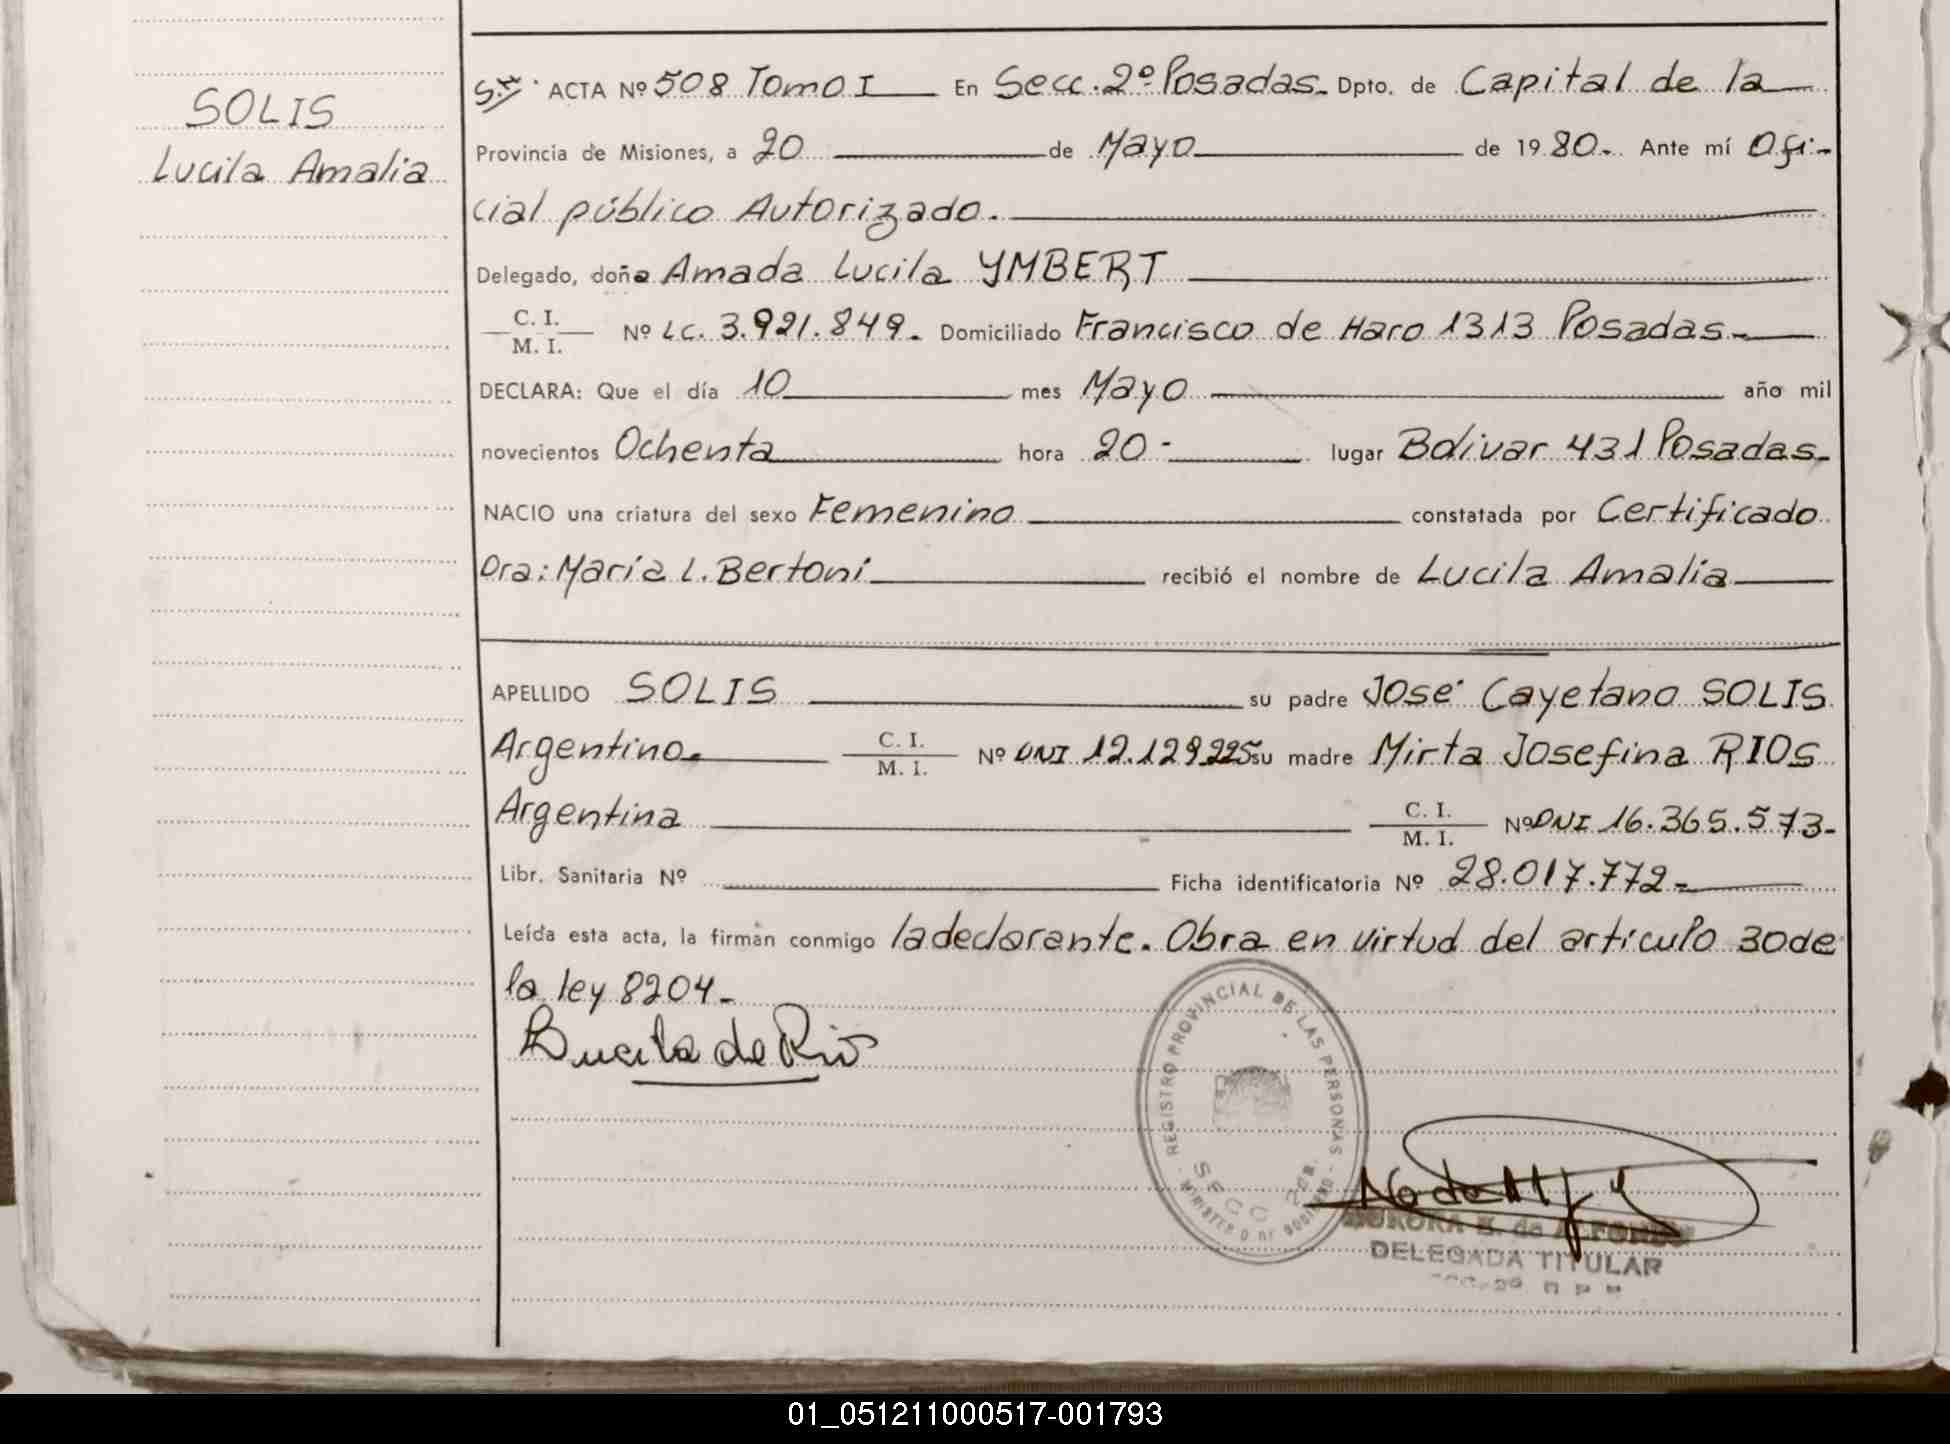 SOLIS
Lucila Amalia
ACTA Nº 508 Tomo I En Secc. 2º Posadas. Dpto. de Capital de la
Provincia de Misiones, a 20 de Mayo de 1980.- Ante mí Ofi-
cial público Autorizado.
Delegado, doña Amada Lucila YMBERT
C. I.
M. I. Nº LC. 3.921.849.- Domiciliado Francisco de Haro 1313 Posadas-
DECLARA: Que el día 10 mes Mayo año mil
novecientos Ochenta hora 20- lugar Bolivar 431 Posadas-
NACIO una criatura del sexo Femenino constatada por Certificado
Dra: María L. Bertoni recibió el nombre de Lucila Amalia
APELLIDO SOLIS su padre José Cayetano SOLIS
Argentino. C. I.
M. I. Nº DNI 12.129.225 su madre Mirta Josefina RIOS
Argentina C. I.
M. I. Nº DNI 16.365.573-
Libr. Sanitaria Nº Ficha identificatoria Nº 28.017.772-
Leída esta acta, la firman conmigo la declarante. Obra en virtud del artículo 30 de
la ley 8204-
Lucila de Rios
REGISTRO PROVINCIAL DE LAS PERSONAS
SECC 2da.
MINISTERIO DE GOBIERNO
AURORA E. de ALFONSO
DELEGADA TITULAR
01_051211000517-001793